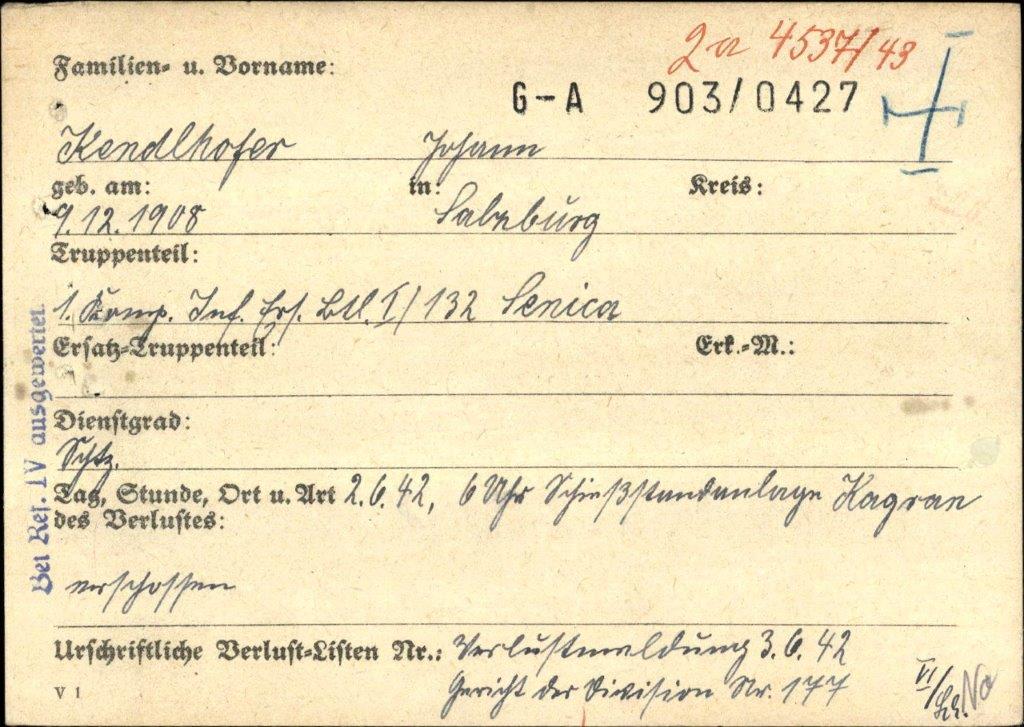 2a 4537/43
Familien- u. Vorname:
G-A 903/0427
Kendlhofer Johann
geb. am: in: Kreis:
9.12.1908 Salzburg
Truppenteil:
1. Komp. Inf. Ers. Btl. I/132 Senica
Ersatz-Truppenteil: Erk.-M.:
Dienstgrad:
Schtz.
Tag, Stunde, Ort u. Art 2.6.42, 6 Uhr Schießstandanlage Kagran
des Verlustes:
erschossen
Urschriftliche Verlust-Listen Nr.: Verlustmeldung 3.6.42
Gericht der Division Nr. 177
V 1
VI/
Bei Ref. IV ausgewertet